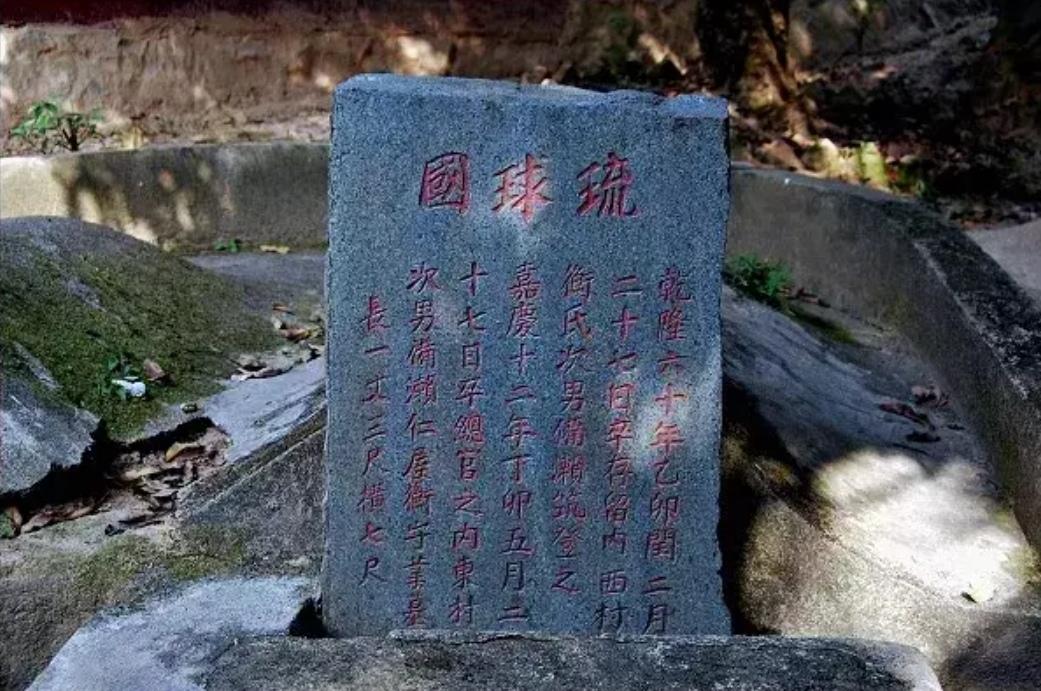 琉球國
乾隆六十年乙卯閏二月
二十七日卒存留內西村
衛氏次男備瀬筑登之
嘉慶十二年丁卯五月二
十七日卒總官之內東村
次男備瀬仁屋衛守
長一丈三尺橫七尺